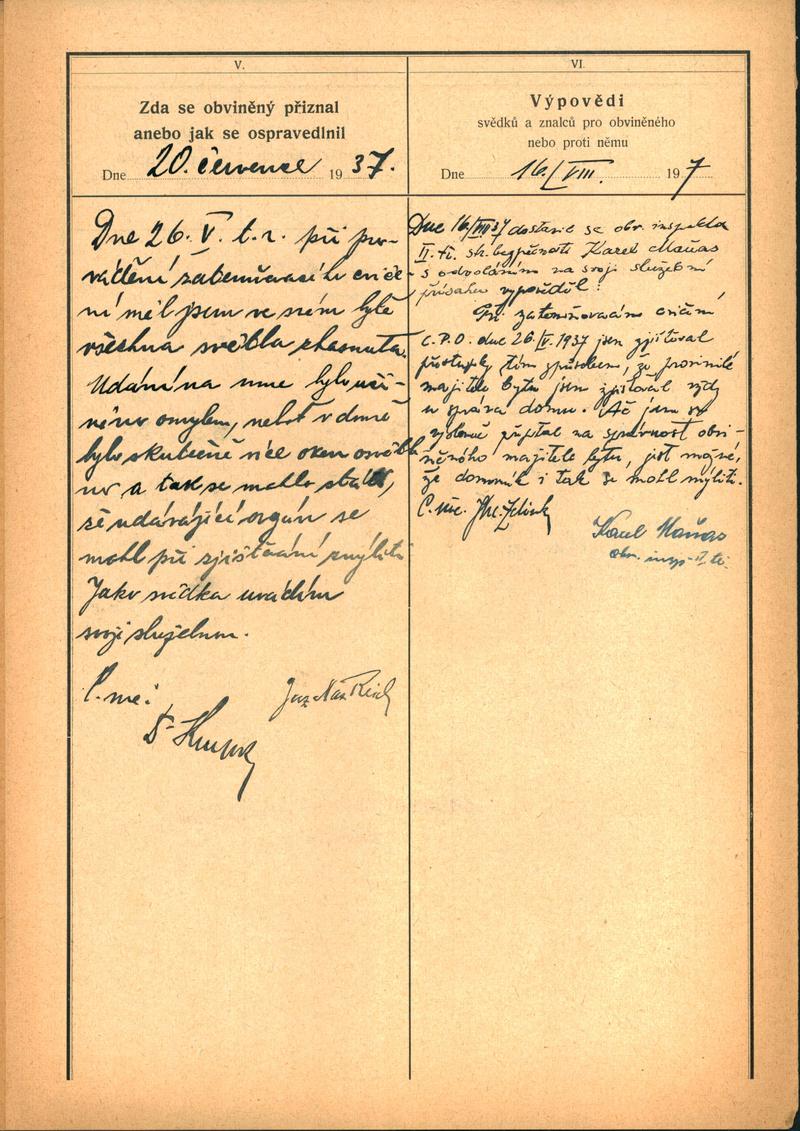 V.
Zda se obviněný přiznal
anebo jak se ospravedlnil
Dne 20. července 1937.
Dne 26. V. t. r. při pro-
vádění zatemňovacího cviče-
ní měl jsem ve svém bytě
všechna světla zhasnuta.
Udání na mne bylo uči-
něno omylem, neboť v domě
bylo skutečně více oken osvětle
no a tak se mohlo státi,
že udávající orgán se
mohl při zjišťování zmýliti
Jako svědka uvádím
svoji služebnou.
VI.
Výpovědi
svědků a znalců pro obviněného
nebo proti němu
Dne 16./VIII. 197
Dne 16/VIII 37 dostavil se obv. inspektor
II. tř. str. bezpečnosti Karel Maňas
s odvoláním na svoji služební
přísahu vypověděl:
Při zatemňovacím cvičení
C.P.O. dne 26. V. 1937 jsem zjišťoval
přestupky tím způsobem, že provinilé
majitele bytu jsem zjišťoval vždy
u správce domu. Ač jsem se
výslovně přeptal na správnost obvi-
něného majitele bytu, jest možné,
že domovník i tak se mohl mýliti.
Karel Maňas
obv. insp. II. tř.